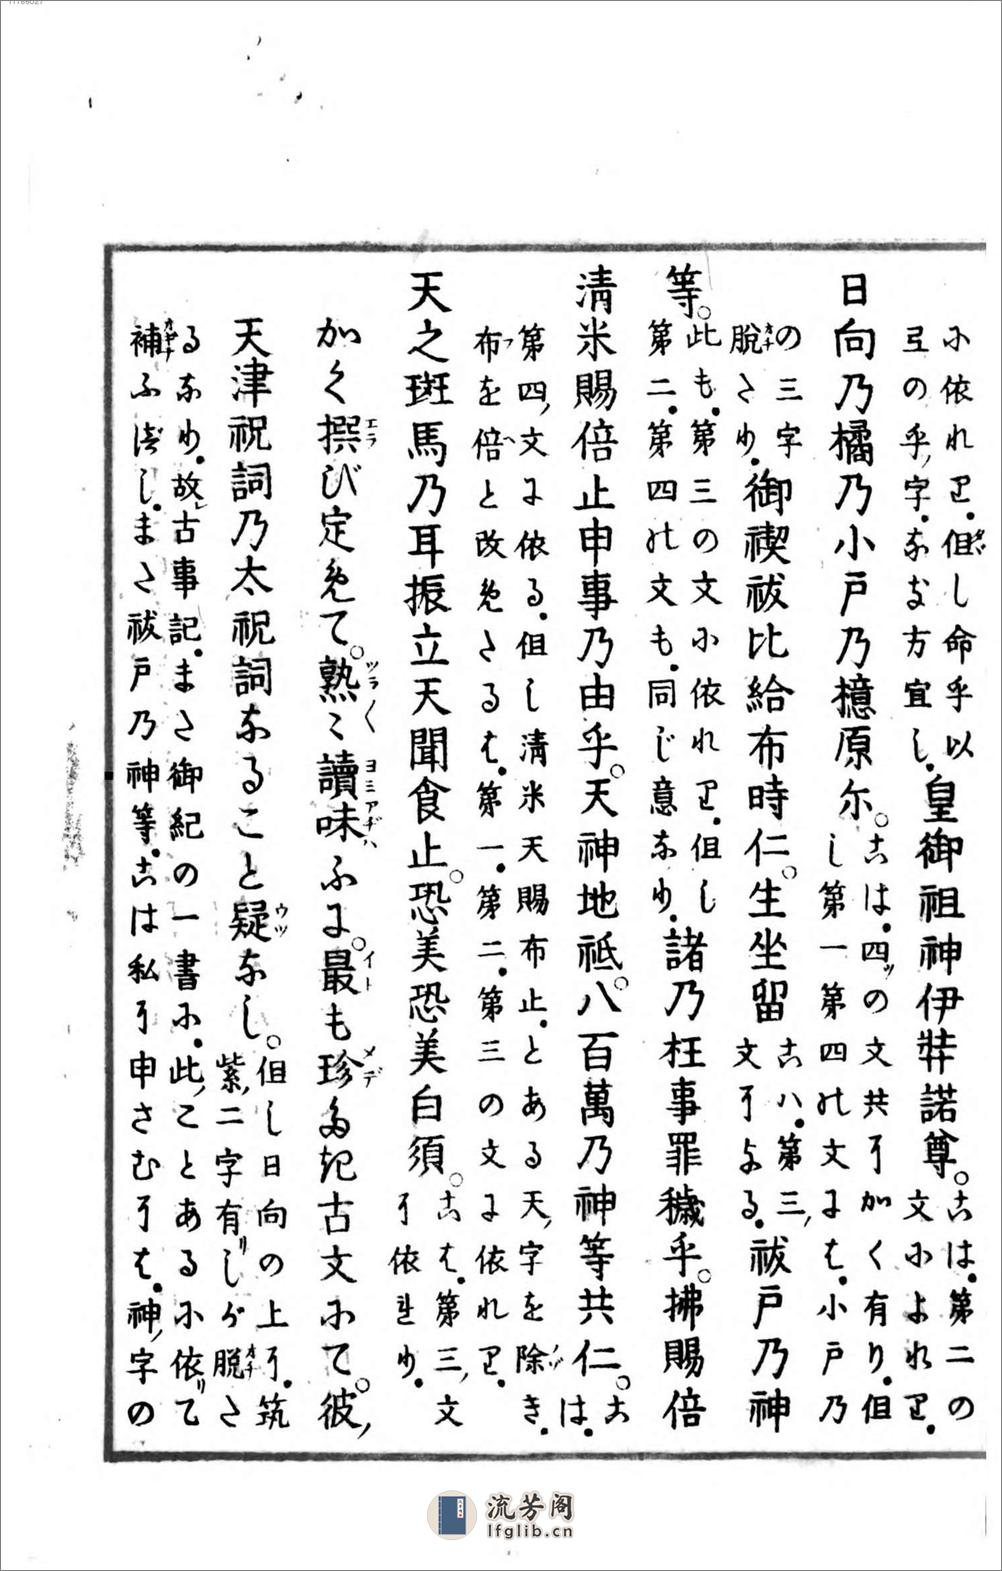 尓依れバ。但し命乎以
弖の乎、字。なき方宜し。皇御祖神伊弉諾尊。古は。第二の
文尓よれバ。
日向乃橘乃小戸乃檍原尓。古は。四ツの文共尓かく有り。但
し第一第四の文には。小戸乃
の三字
脱たり。御禊祓比給布時仁。生坐留古ハ。第三、
文尓よる。祓戸乃神
等。此も。第三の文尓依れバ。但し
第二。第四の文も。同じ意なり。諸乃枉事罪穢乎。拂賜倍
清米賜倍止申事乃由乎。天神地祇。八百萬乃神等共仁。古
は。
第四、文に依る。但し清米天賜布止。とある天、字を除き。
布を倍と改めたるは。第一。第二。第三の文に依れバ。
天之斑馬乃耳振立天聞食止。恐美恐美白須。古は。第三、文
尓依れり。
かく撰び定めて。熟〻讀味ふに。最も珍たき古文尓て。彼、
天津祝詞乃太祝詞なること疑なし。但し日向の上尓。筑
紫、二字有しが脱た
るなり。故古事記。また御紀の一書尓。此、ことある尓依て
補ふべし。また祓戸乃神等。古は私尓申さむ尓は。神、字の
流芳阁
lfglib.cn